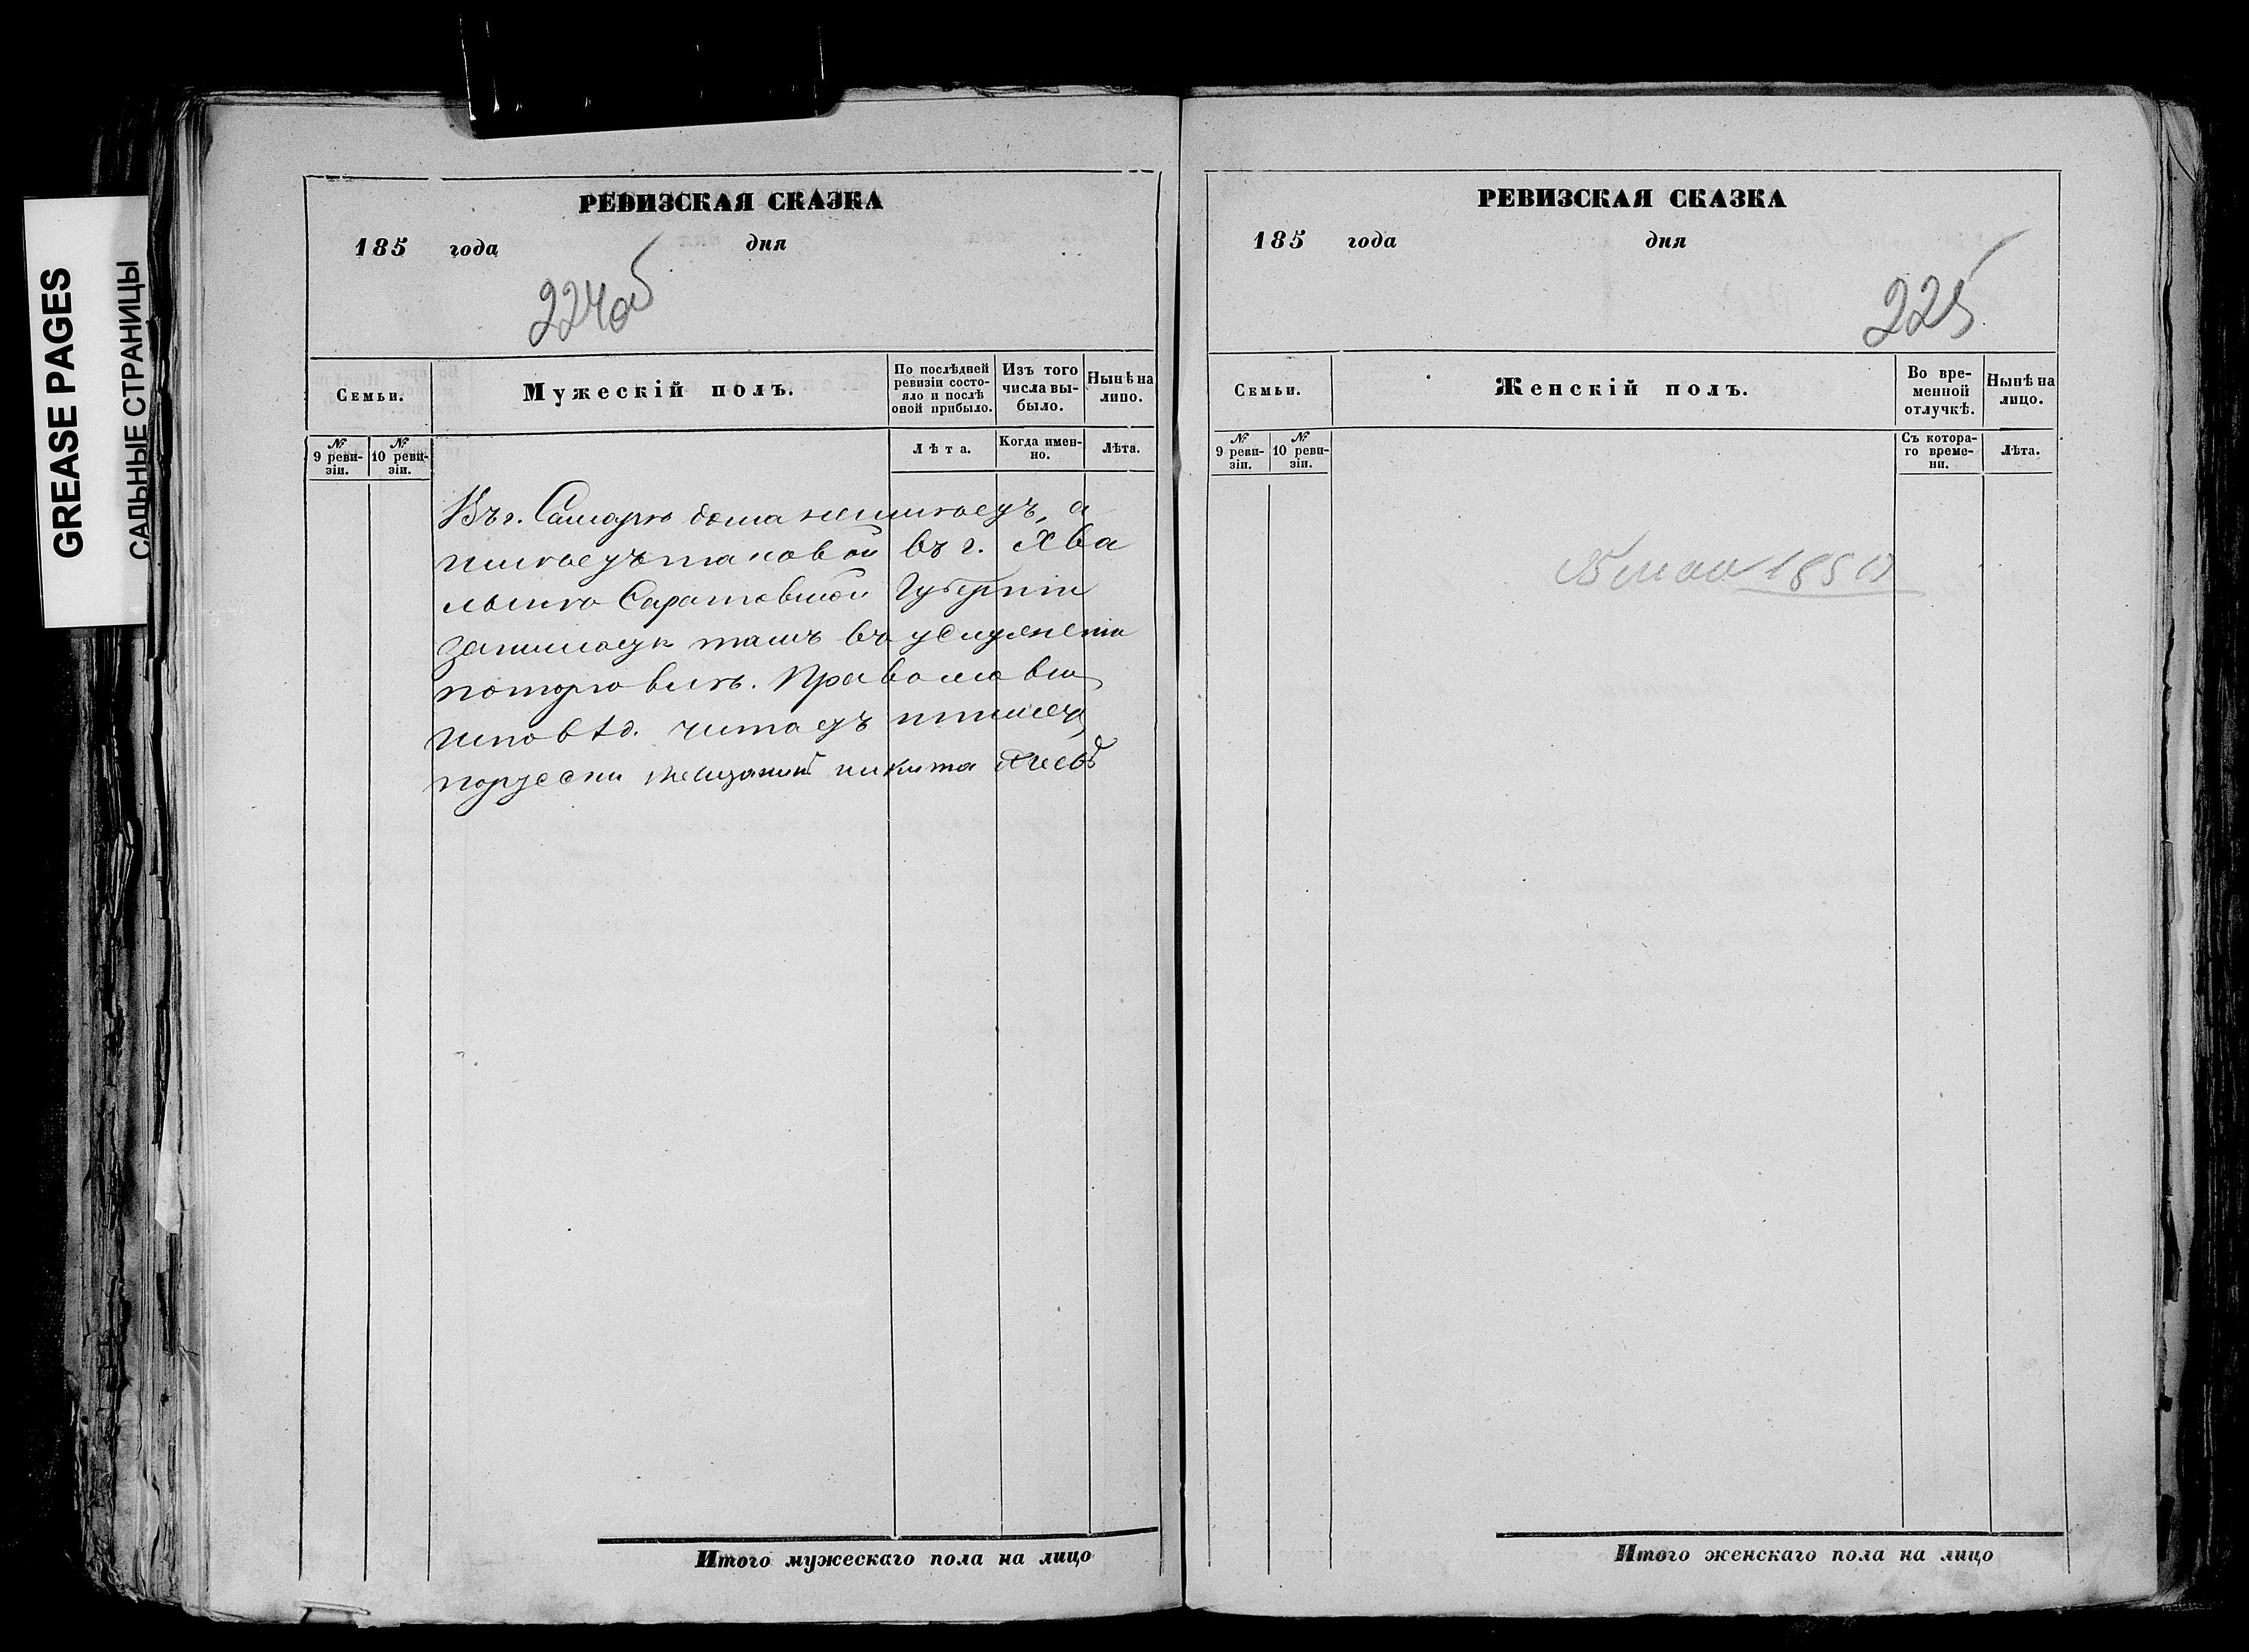 GREASE PAGES
САЛЬНЫЕ СТРАНИЦЫ
РЕВИЗСКАЯ СКАЗКА
185 года дня
224об
Семьи.
Мужескій полъ.
По послѣдней ревизіи состояло и послѣ оной прибыло.
Изъ того числа выбыло.
Нынѣ на лицо.
№ 9 ревизіи.
№ 10 ревизіи.
Лѣта.
Когда именно.
Лѣта.
Въ г. Самарѣ дома неимѣетъ, а
имѣетъ таковой въ г. Хва
лынскѣ Саратовской Губерніи
там въ
Православн
исповѣд. читаетъ
никита
Итого мужескаго пола на лицо
РЕВИЗСКАЯ СКАЗКА
185 года дня
225
Семьи.
Женскій полъ.
Во временной отлучкѣ.
Нынѣ на лицо.
№ 9 ревизіи.
№ 10 ревизіи.
Съ котораго времени.
Лѣта.
мая
Итого женскаго пола на лицо